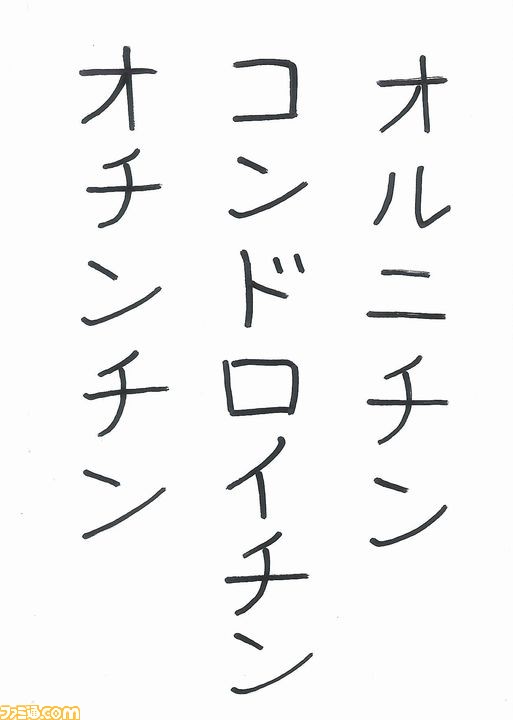 オルニチン
コンドロイチン
オチンチン
ファミ通.com